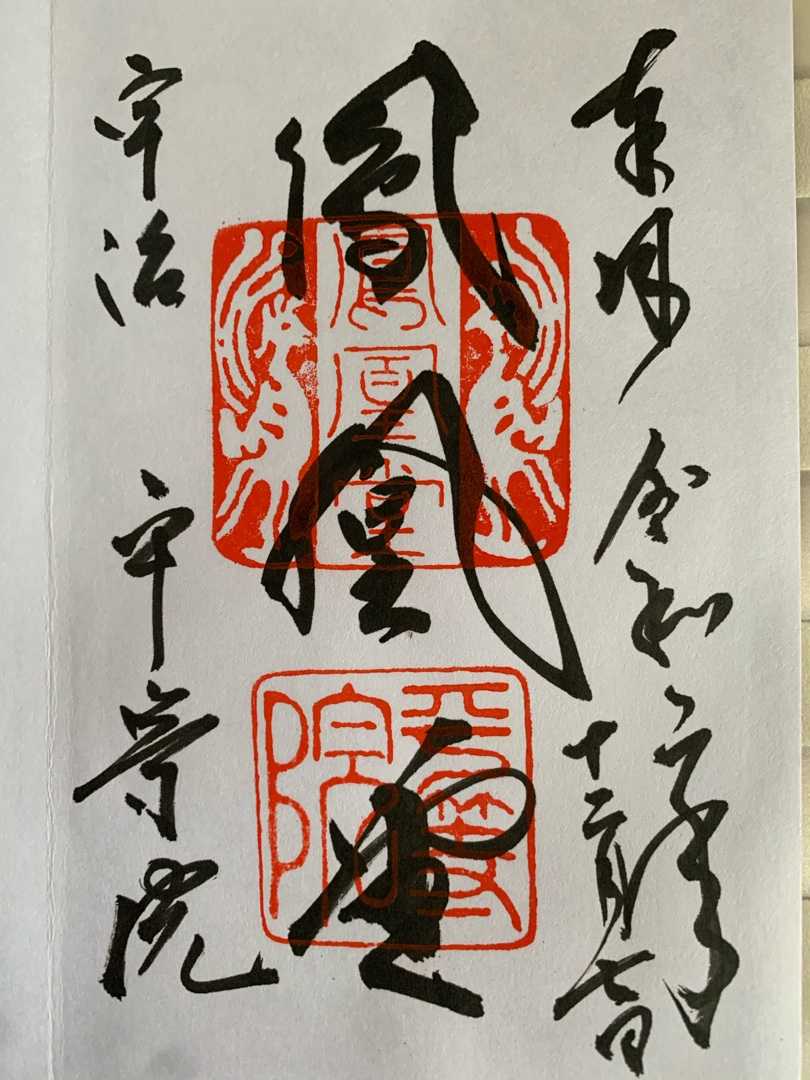 奉拝 令和二年
十二月七日
鳳凰堂
宇治 平等院
鳳凰堂
平等院